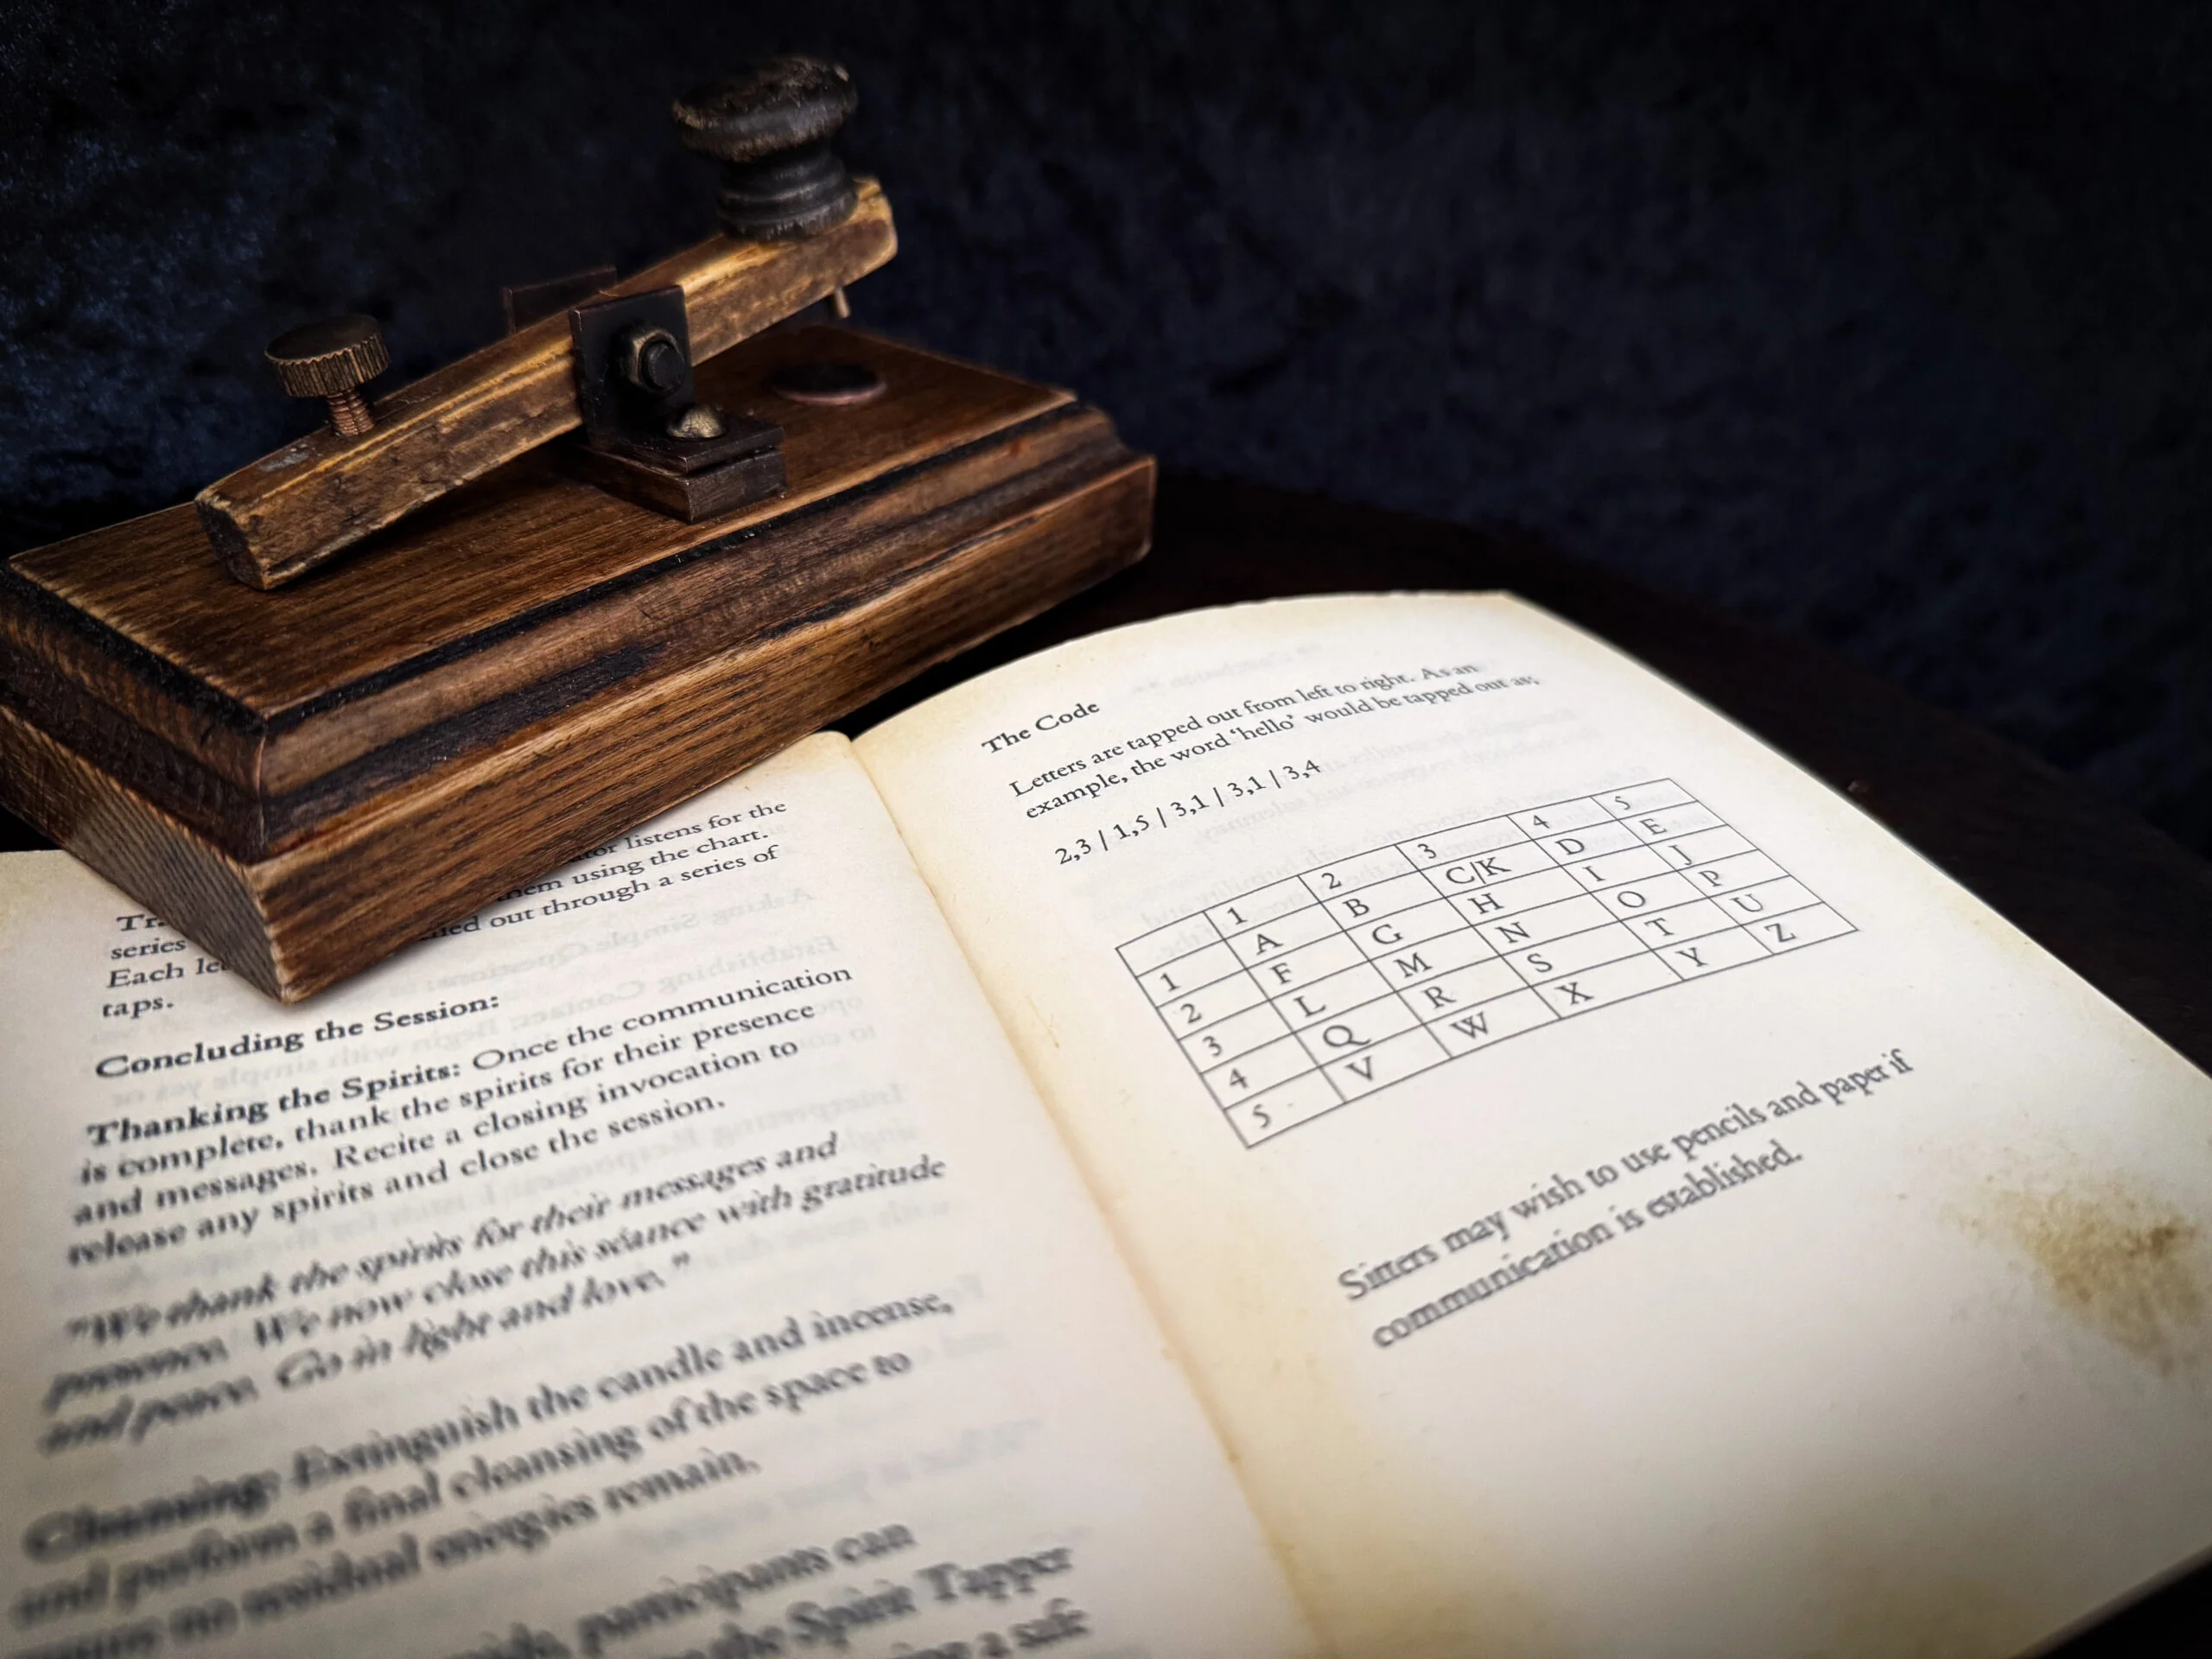 listens for the
using the chart.
out through a series of
series
Each
taps.
Concluding the Session:
Thanking the Spirits: Once the communication
is complete, thank the spirits for their presence
and messages. Recite a closing invocation to
release any spirits and close the session.
"We thank the spirits for their messages and
presence. We now close this séance with gratitude
and peace. Go in light and love."
Cleansing: Extinguish the candle and incense,
and perform a final cleansing of the space to
no residual energies remain.
participants can
the Spirit Tapper
a safe
The Code
Letters are tapped out from left to right. As an
example, the word 'hello' would be tapped out as;
2,3 / 1,5 / 3,1 / 3,1 / 3,4
1 2 3 4 5
1 A B C/K D E
2 F G H I J
3 L M N O P
4 Q R S T U
5 V W X Y Z
Sitters may wish to use pencils and paper if
communication is established.